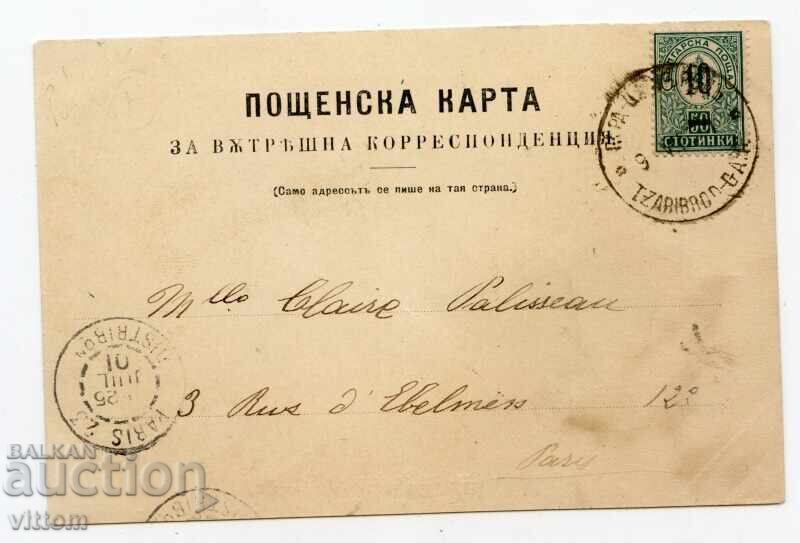 ПОЩЕНСКА КАРТА
ЗА ВѪТРѢШНА КОРРЕСПОНДЕНЦИЯ
(Само адрессътъ се пише на тая страна.)
10
50
СТОТИНКИ
TZARIBROD-GARE
Mlle Claire Palisseau
3 Rue d'Ebelmen 12e
Paris
PARIS 23
DISTRIBON
25
JUIL
01
BALKAN
auction
vittom